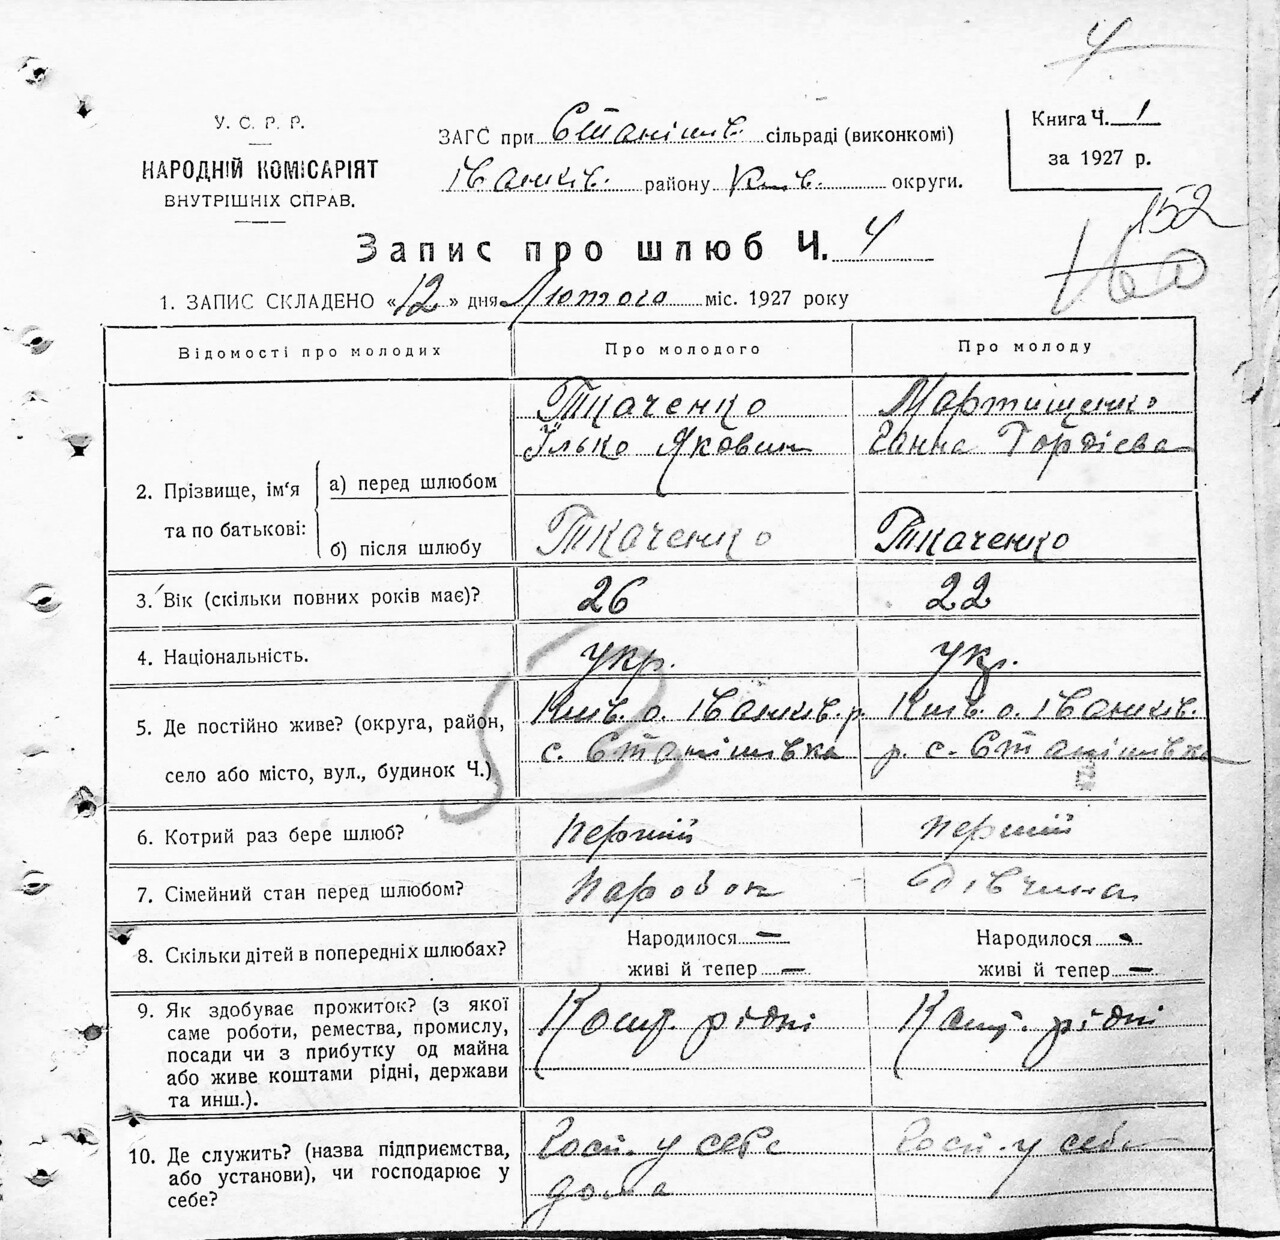 4
У. С. Р. Р.
НАРОДНІЙ КОМІСАРІЯТ
ВНУТРІШНІХ СПРАВ.
ЗАГС при Станішів. сільраді (виконкомі)
Іванків. району Київ. округи.
Книга Ч. 1
за 1927 р.
152
160
Запис про шлюб Ч. 4
1. ЗАПИС СКЛАДЕНО «12» дня Лютого міс. 1927 року
Відомості про молодих
Про молодого
Про молоду
2. Прізвище, ім‘я
та по батькові:
а) перед шлюбом
Ткаченко
Ілько Якович
Мартищенко
Ганна Гордієва
б) після шлюбу
Ткаченко
Ткаченко
3. Вік (скільки повних років має)?
26
22
4. Національність.
укр.
укр.
5. Де постійно живе? (округа, район,
село або місто, вул., будинок Ч.)
Київ. о. Іванків. р.
с. Станішівка
Київ. о. Іванків.
р. с. Станішівка
6. Котрий раз бере шлюб?
перший
перший
7. Сімейний стан перед шлюбом?
парубок
дівчина
8. Скільки дітей в попередніх шлюбах?
Народилося —
живі й тепер —
Народилося —
живі й тепер —
9. Як здобуває прожиток? (з якої
саме роботи, ремества, промислу,
посади чи з прибутку од майна
або живе коштами рідні, держави
та инш.).
Кошт. рідні
Кошт. рідні
10. Де служить? (назва підприємства,
або установи), чи господарює у
себе?
Госп. у себе
дома
Госп. у себе